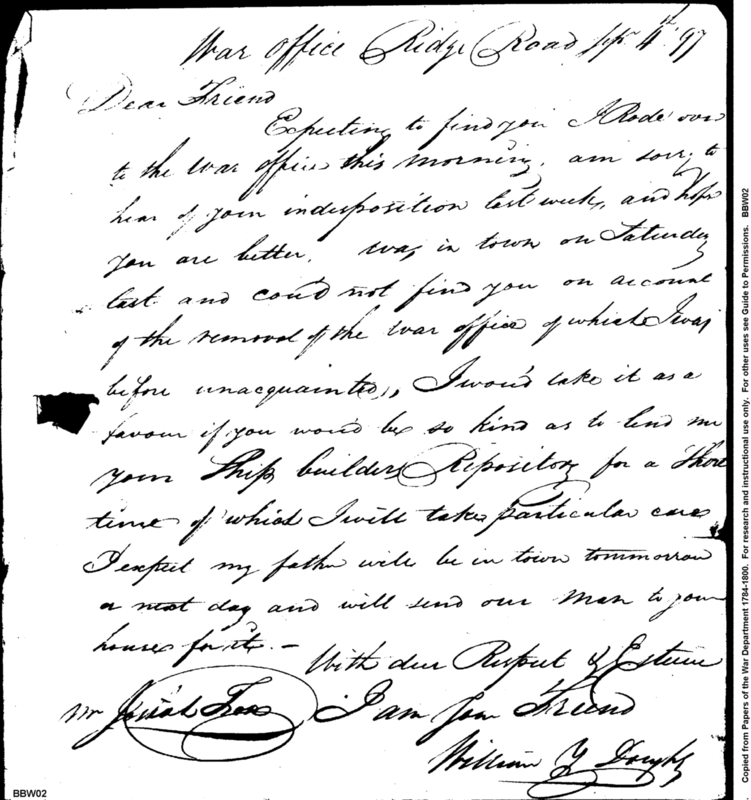 War Office Ridge Road Sepr. 4th 97
Dear Friend
Expecting to find you I Rode over
to the War office this morning. am sorry to
hear of your indisposition last week, and hope
you are better. Was in town on Saturday
last and cou'd not find you on account
of the removal of the War office of which I was
before unacquainted, I wou'd take it as a
favour if you wou'd be so kind as to lend me
your Ship builders Repository for a Short
time of which I will take particular care
I expect my father will be in town tommorrow
or next day and will send our man to your
house for it. -
With due Respect & Esteem
Mr Josiah Fox I am your Friend
William Y Doughty
BBW02
Copied from Papers of the War Department 1784-1800. For research and instructional use only. For other uses see Guide to Permissions. BBW02